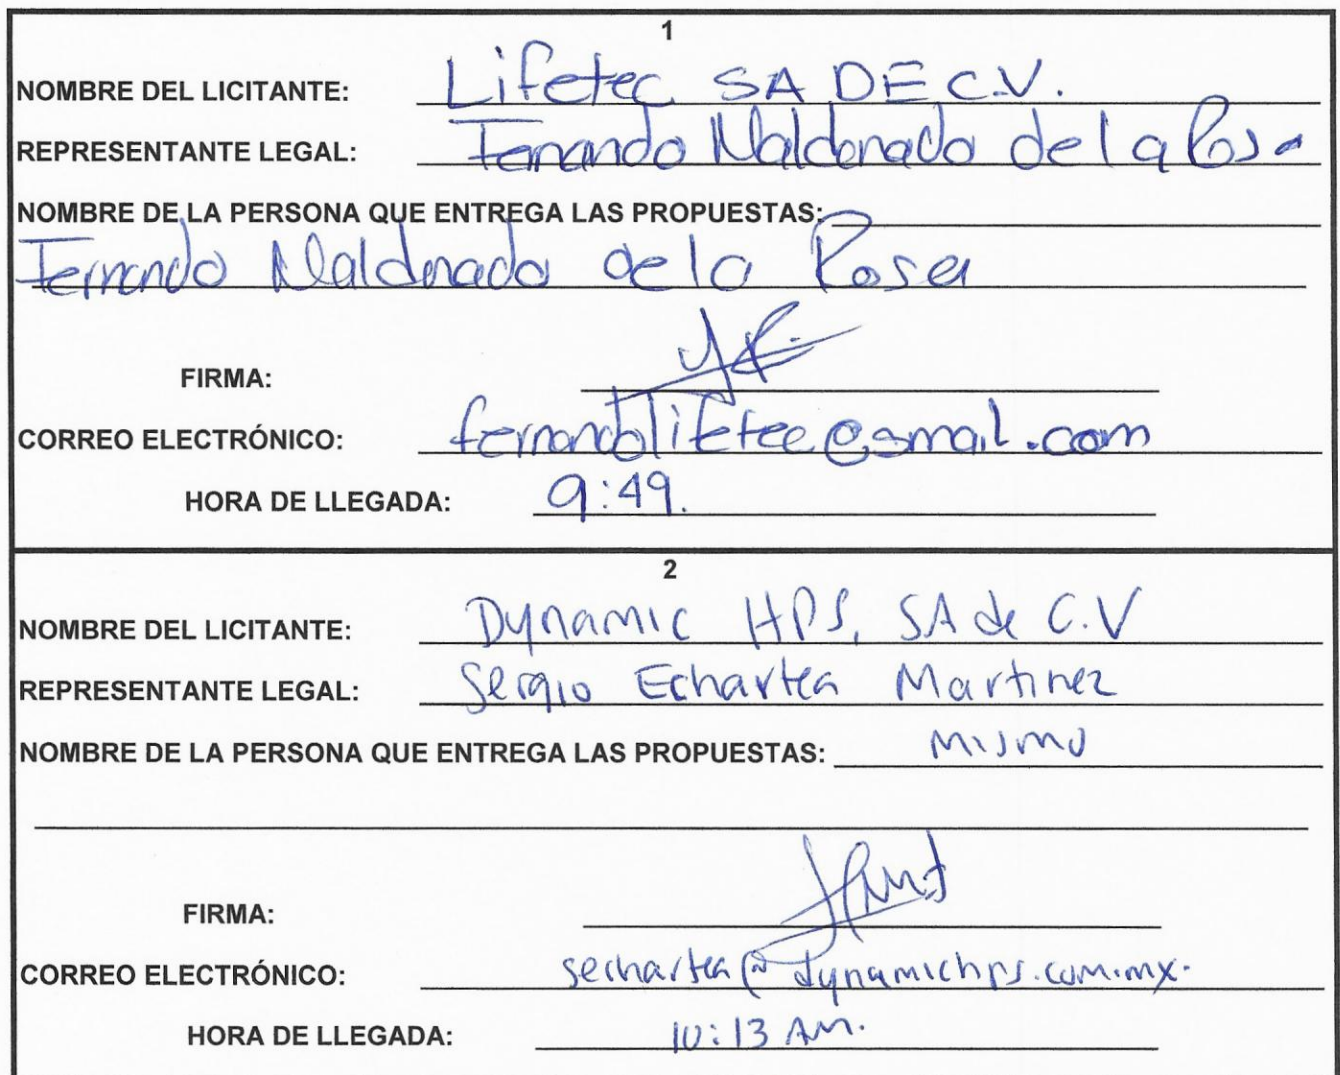 1
NOMBRE DEL LICITANTE: Lifetec SA DE C.V.
REPRESENTANTE LEGAL: Fernando Maldonado de la Rosa
NOMBRE DE LA PERSONA QUE ENTREGA LAS PROPUESTAS:
Fernando Maldonado de la Rosa
FIRMA:
CORREO ELECTRÓNICO: fernandolifetec@gmail.com
HORA DE LLEGADA: 9:49.
2
NOMBRE DEL LICITANTE: Dynamic HPS, SA de C.V
REPRESENTANTE LEGAL: Sergio Echartea Martinez
NOMBRE DE LA PERSONA QUE ENTREGA LAS PROPUESTAS: Mismo
FIRMA:
CORREO ELECTRÓNICO: sechartea@dynamichps.com.mx.
HORA DE LLEGADA: 10:13 AM.